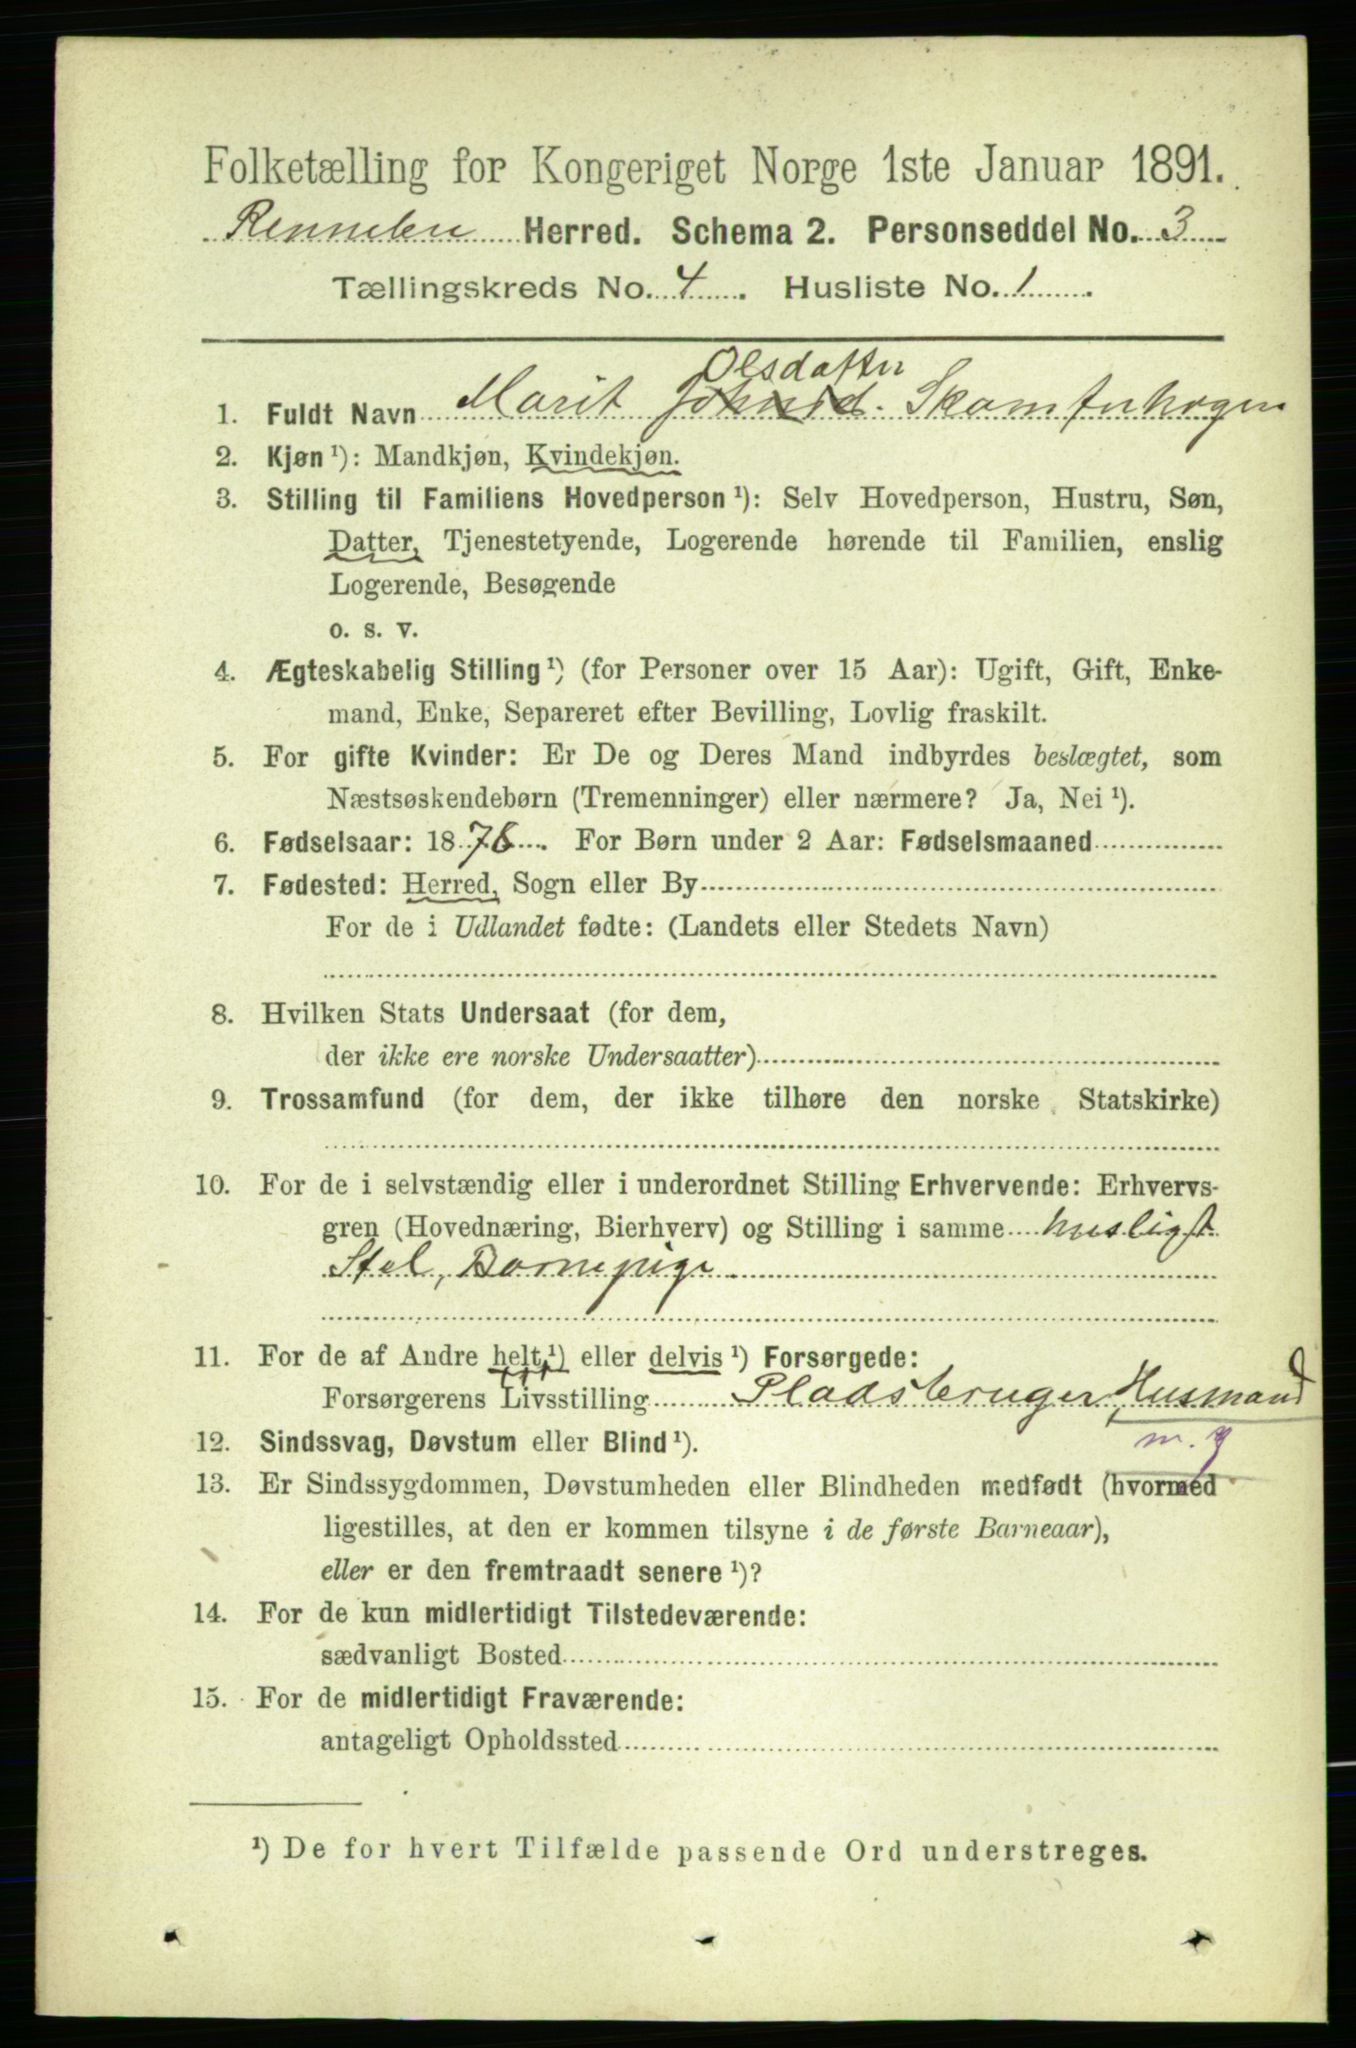 Folketælling for Kongeriget Norge 1ste Januar 1891.
Rennebu Herred. Schema 2. Personseddel No. 3
Tællingskreds No. 4. Husliste No. 1.
Olsdatter
1. Fuldt Navn Marit Johnsd. Skamferhogen
2. Kjøn ¹): Mandkjøn, Kvindekjøn.
3. Stilling til Familiens Hovedperson ¹): Selv Hovedperson, Hustru, Søn,
Datter, Tjenestetyende, Logerende hørende til Familien, enslig
Logerende, Besøgende
o. s. v.
4. Ægteskabelig Stilling ¹) (for Personer over 15 Aar): Ugift, Gift, Enke-
mand, Enke, Separeret efter Bevilling, Lovlig fraskilt.
5. For gifte Kvinder: Er De og Deres Mand indbyrdes beslægtet, som
Næstsøskendebørn (Tremenninger) eller nærmere? Ja, Nei ¹).
6. Fødselsaar: 1876. For Børn under 2 Aar: Fødselsmaaned
7. Fødested: Herred, Sogn eller By
For de i Udlandet fødte: (Landets eller Stedets Navn)
8. Hvilken Stats Undersaat (for dem,
der ikke ere norske Undersaatter)
9. Trossamfund (for dem, der ikke tilhøre den norske Statskirke)
10. For de i selvstændig eller i underordnet Stilling Erhvervende: Erhvervs-
gren (Hovednæring, Bierhverv) og Stilling i samme husligt
Stel, Barnepige
11. For de af Andre helt ¹) eller delvis ¹) Forsørgede:
Forsørgerens Livsstilling Pladsbruger, Husmand
m. J
12. Sindssvag, Døvstum eller Blind ¹).
13. Er Sindssygdommen, Døvstumheden eller Blindheden medfødt (hvormed
ligestilles, at den er kommen tilsyne i de første Barneaar),
eller er den fremtraadt senere ¹)?
14. For de kun midlertidigt Tilstedeværende:
sædvanligt Bosted
15. For de midlertidigt Fraværende:
antageligt Opholdssted
¹) De for hvert Tilfælde passende Ord understreges.